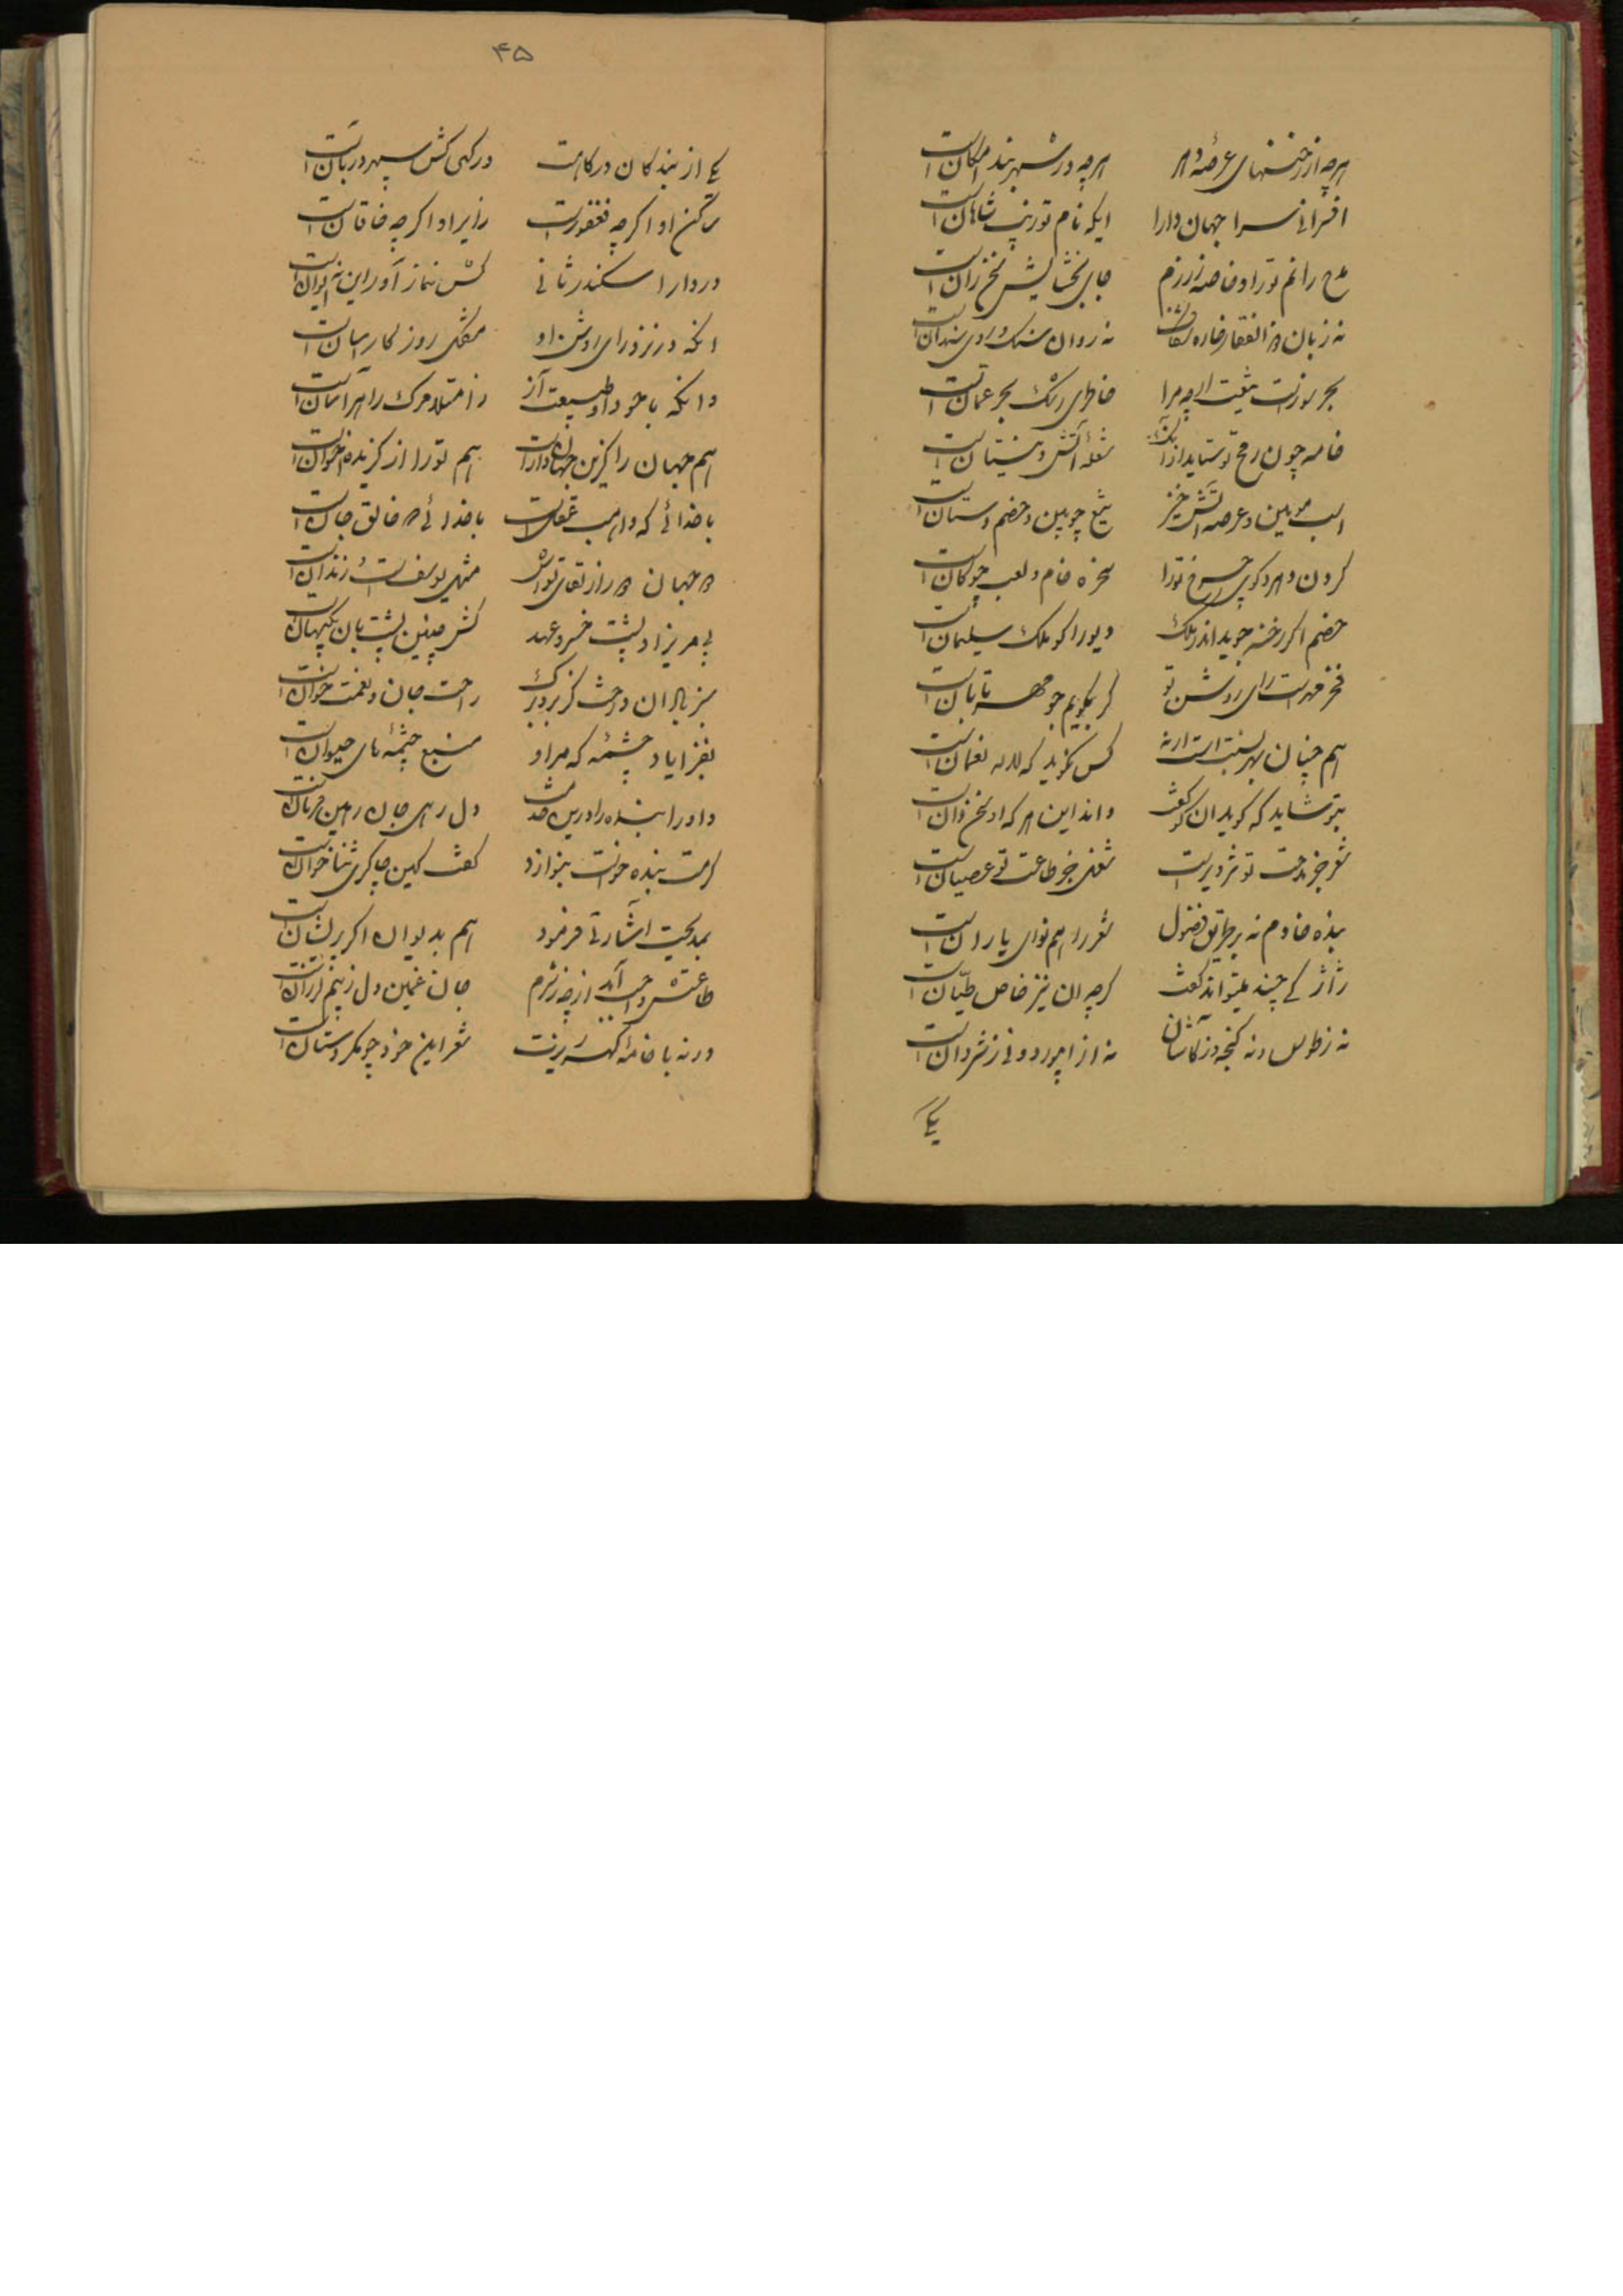 هرچه از رخنهای عرصهٔ
هرچه در شهربند امکان است
افسرانی سرا جهان دارا
ایکه نام تو زیب شاهان است
مدح رانم تو را و خاصه ز رزم
جای بخشایش سخن ران است
نه زبان ذوالفقار خاره
نه روان سنک و روی سندان است
بحر موزیست مرا
خاطری رشک بحر عمان است
خامه چون رمح تو ستاید
شعله آتش و نیستان است
اسب موبین و عرصه آتش خیز
تیغ چوبین و خصم دستان است
کردن و مرد کوی چرخ تو را
سخره خام و لعب چوکان است
خصم اکر رخنه جوید اندر ملک
دیو را کو ملک سلیمان است
رای روشن تو
کر بکویم چو مهر تابان است
هم چنان
کس بکوید که لاله نعمان است
بتو شاید که کوید ان کو کفت
داند این هر که او سخن دان است
شعر جز مدحت تو تزویر است
شغل جز طاعت تو عصیان است
بنده خادم نه بر طریق فضول
شعر را هم نوای یاران است
ژاژ کی چند میتواند کفت
کرچه ان نیز خاص طیان است
نه ز طوس و نه کنجه و ز کاشان
نه از ابیورد و نی ز شروان است
یکی
۴۵
یکی از بندکان درکاهت
درکهی کش سپهر دربان است
او اکرچه فغفور است
زایر او اکرچه خاقان است
در دارا سکندر ثانی
کش نماز آور این نه ایوان است
انکه در نزد رای روشن او
مشکل روزکار اسان است
وانکه با جود او طبیعت آز
ز امتلا مرک را هراسان است
هم جهان را کزین جهان دار است
هم تو را از کزیده اخوان است
با خدائی که واهب عقل است
با خدائی که خالق جان است
که جهان
مثل یوسف است و زندان است
بی مریزاد پشت خسرو عهد
کش چنین پشتبان نکهبان است
سبز باد ان درخت کز بر و برک
راحت جان و نعمت خوان است
نغز ایاد چشمه که مر او
منبع چشمه‌های حیوان است
داورا بنده را درین خدمت
دل رهی جان رهین فرمان است
کرمت بنده خواست بنوازد
کفت کاین چاکری ثنا خوان است
بمدیحت اشارتی فرمود
هم بدیوان اکر پریشان است
طاعتش واجب آمد ارچه ز شرم
جان غمین دل ز بیم لرزان است
ورنه با خامهٔ کهر ریزت
شعر این خود چو مکر دستان است